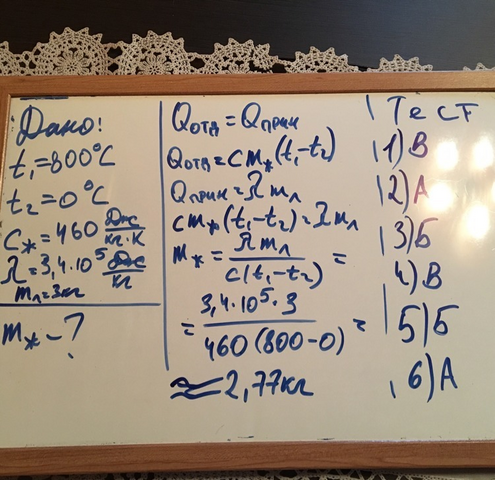 Дано:
t₁=800°C
t₂=0°C
Cж=460 Дж/кг·К
λ=3,4·10⁵ Дж/кг
mл=3кг
mж-?
Qотд=Qприн
Qотд=Cmж(t₁-t₂)
Qприн=λmл
Cmж(t₁-t₂)=λmл
mж=λmл/c(t₁-t₂)=
=3,4·10⁵·3/460(800-0)=
≈2,77кг
Тест
1)В
2)А
3)Б
4)В
5)Б
6)А